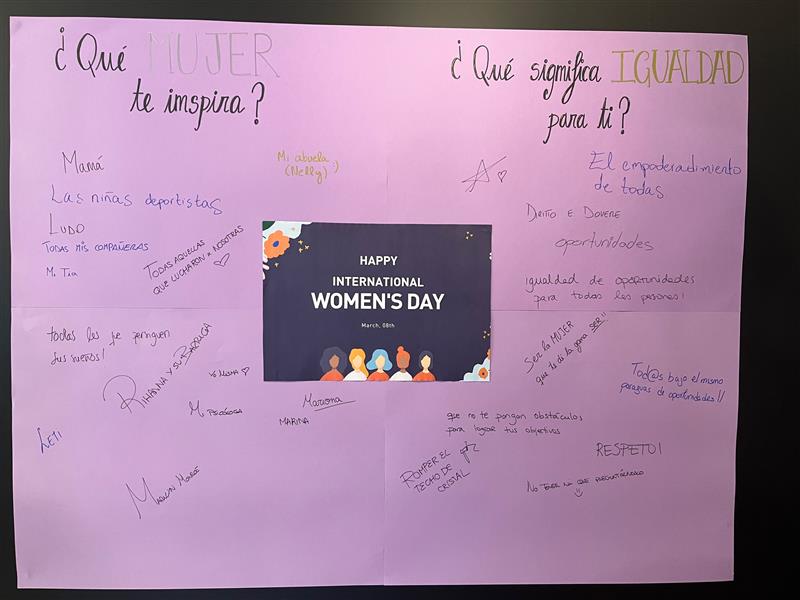 ¿Qué MUJER
te inspira?
Mamá
Mi abuela :)
(Nelly)
Las niñas deportistas
LUDO
TODAS MIS COMPAÑERAS
TODAS AQUELLAS
QUE LUCHARON x NOSOTRAS
Mi Tía
todas les
sus sueños!
RIHANNA Y SU BARRIGA
YO MISMA
Mariona
MARINA
LETI
MARILYN MONROE
HAPPY
INTERNATIONAL
WOMEN'S DAY
March, 08th
¿Qué significa IGUALDAD
para ti?
El empoderadimiento
de todas
DIRITTO E DOVERE
oportunidades
igualdad de oportunidades
para todas les persones!
Ser la MUJER
que te dé la gana SER!!
Tod@s bajo el mismo
paraguas de oportunidades!!
que no te pongan obstáculos
para lograr tus objetivos
ROMPER EL
TECHO DE
CRISTAL
RESPETO!
NO TENER NA QUE PREGUNTÁRNOSLO